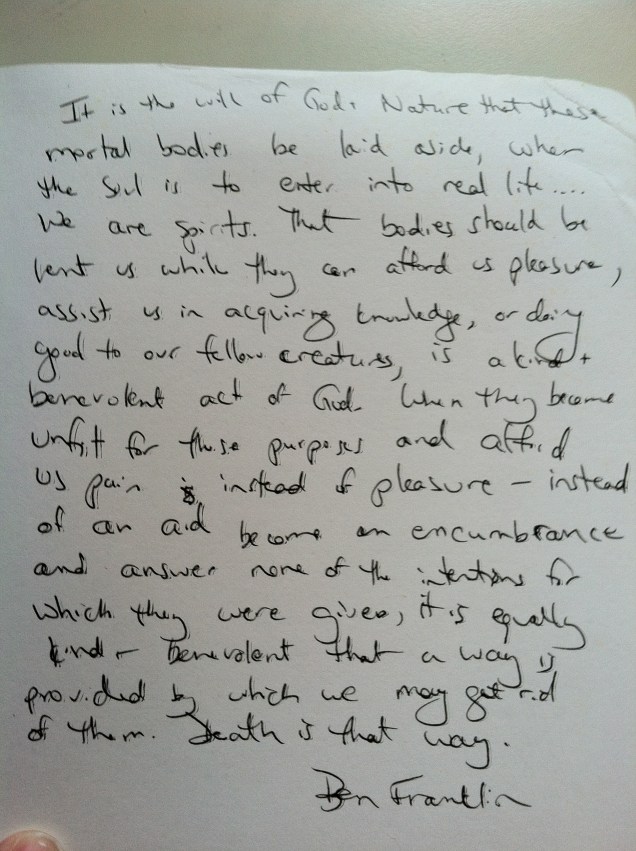 It is the will of God + Nature that these
mortal bodies be laid aside, when
the soul is to enter into real life....
We are spirits. That bodies should be
lent us while they can afford us pleasure,
assist us in acquiring knowledge, or doing
good to our fellow creatures, is a kind +
benevolent act of God. When they become
unfit for these purposes and afford
us pain instead of pleasure – instead
of an aid become an encumbrance
and answer none of the intentions for
which they were given, it is equally
kind + benevolent that a way is
provided by which we may get rid
of them. Death is that way.
Ben Franklin